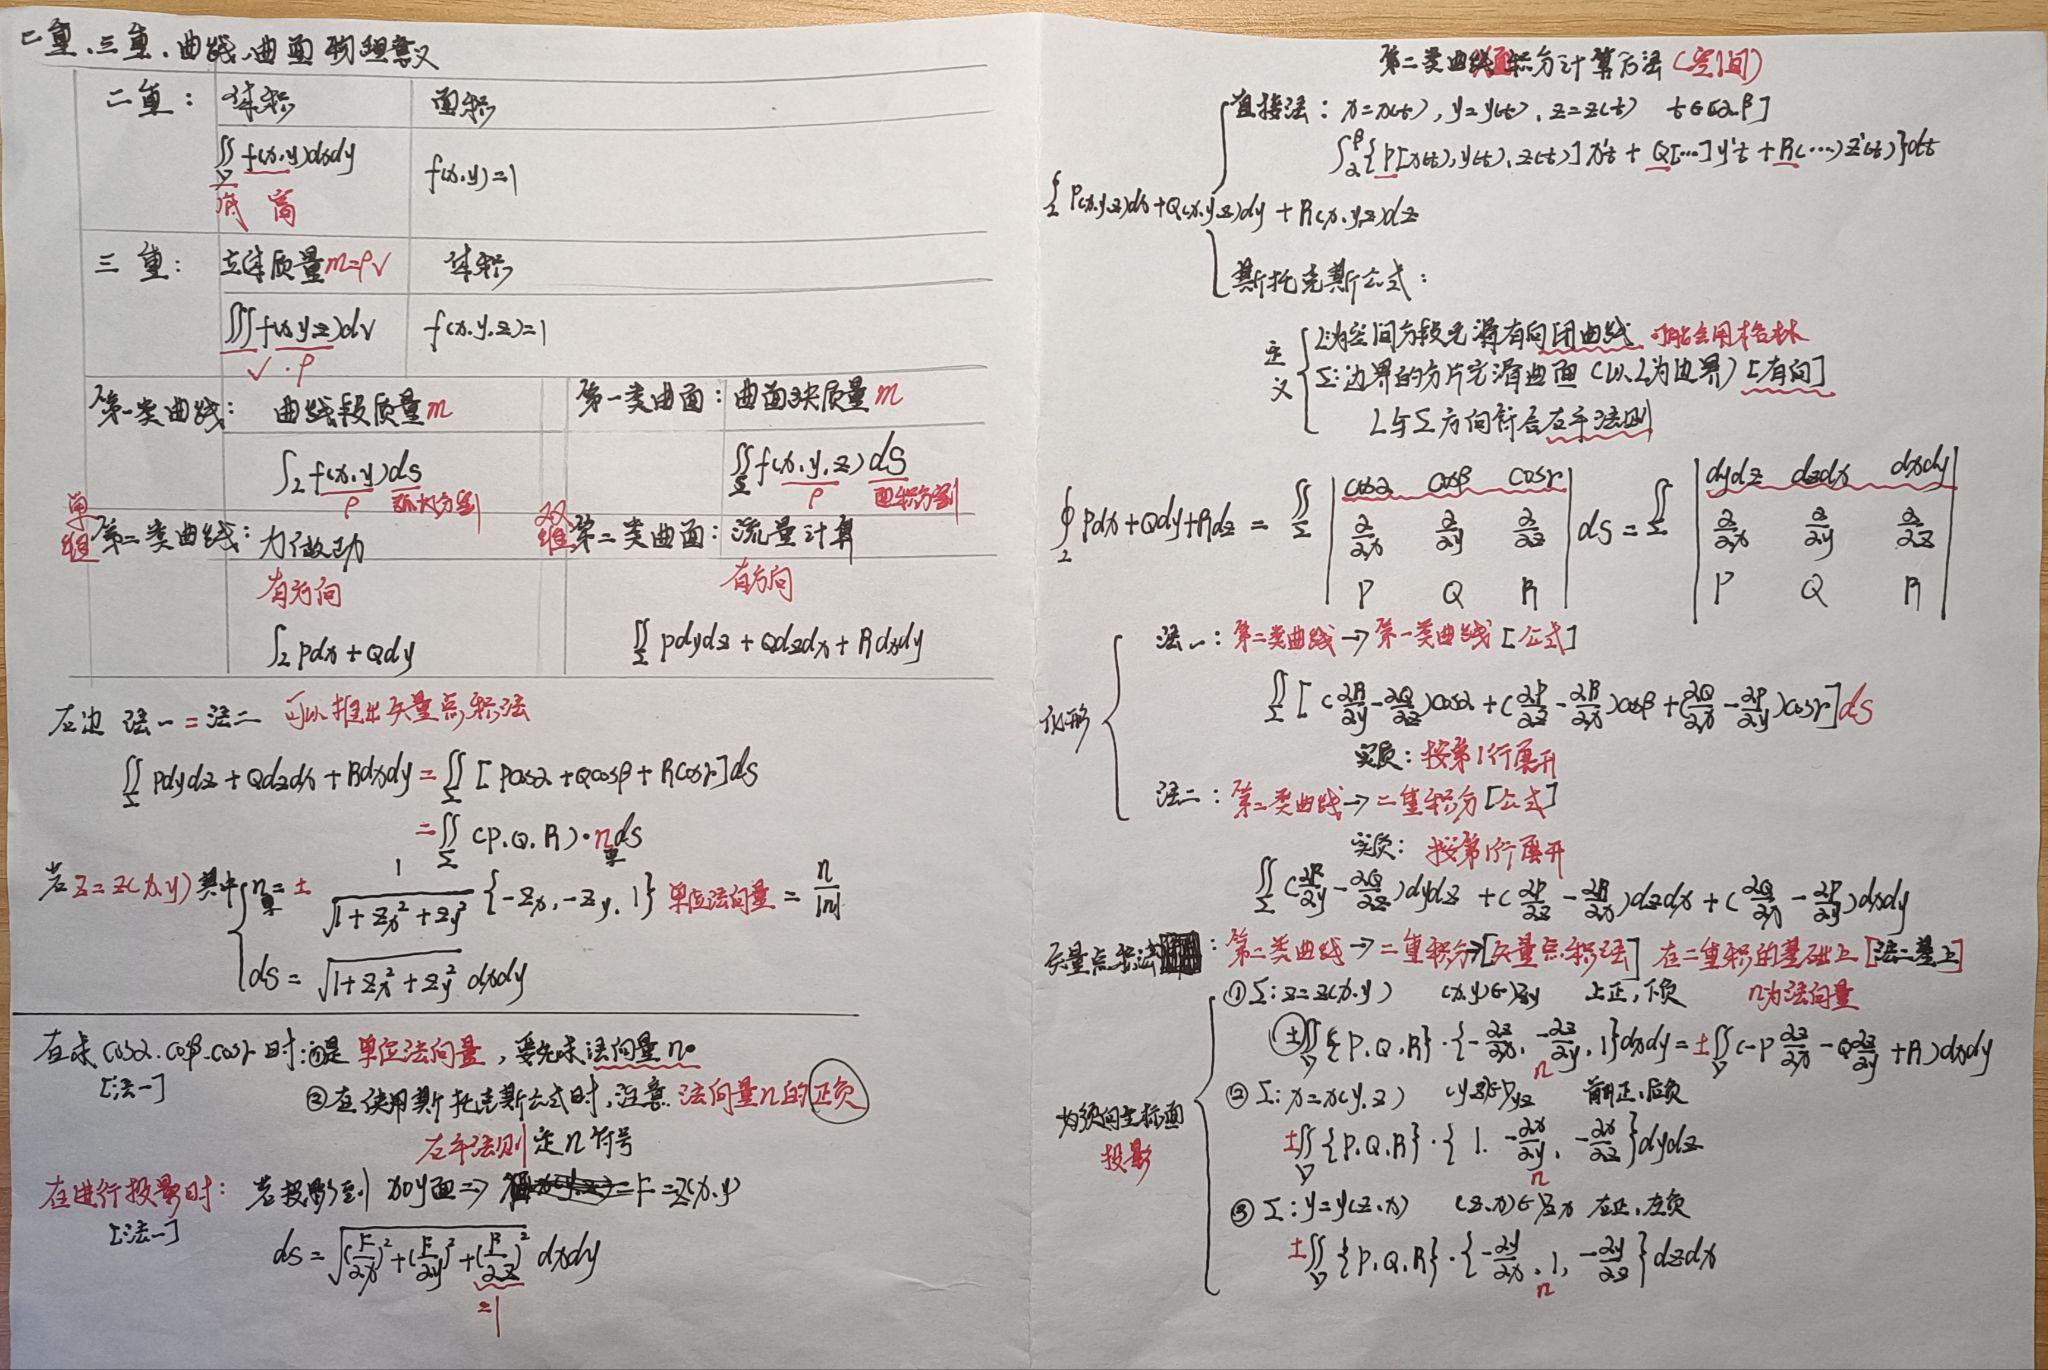 二重、三重、曲线、曲面物理意义
二重: 体积 面积
∬_D f(x.y)dxdy f(x.y)=1
底 高
三重: 立体质量m=ρv 体积
∭f(x.y.z)dv f(x.y.z)=1
v . ρ
第一类曲线: 曲线段质量m 第一类曲面: 曲面块质量m
∫_L f(x.y)ds ∬_Σ f(x.y.z)dS
ρ 弧长分割 ρ 面积分割
单组 第二类曲线: 力做功 双组 第二类曲面: 流量计算
有方向 有方向
∫_L Pdx+Qdy ∬_Σ Pdydz+Qdzdx+Rdxdy
右边 法一=法二 可以推出矢量点积法
∬_Σ Pdydz+Qdzdx+Rdxdy=∬_Σ [Pcosα+Qcosβ+Rcosγ]ds
=∬_Σ (P.Q.R)·n单ds
若z=z(x.y)其中 { n单=± 1/√(1+Zx²+Zy²) {-Zx,-Zy,1} 单位法向量=n/|n|
ds=√(1+Zx²+Zy²) dxdy
在求cosα.cosβ.cosγ时:①是单位法向量,要先求法向量n。
[法一]
②在使用斯托克斯公式时,注意法向量n的正负
右手法则定n符号
在进行投影时: 若投影到xoy面⇒ F=z(x.y)
[法一]
ds=√((F/∂x)²+(F/∂y)²+(F/∂z)²) dxdy
=1
第二类曲线积分计算方法(空间)
直接法: x=x(t),y=y(t).z=z(t) t∈[α.β]
∫_α^β{P[x(t),y(t).z(t)]x't+Q[…]y't+R(…)z'(t)}dt
∫_L P(x.y.z)dx+Q(x.y.z)dy+R(x.y.z)dz
斯托克斯公式:
定义 { L:为空间分段光滑有向闭曲线 可能会用格林
Σ:边界的分片光滑曲面(以L为边界)[有向]
L与Σ方向符合右手法则
∮_L Pdx+Qdy+Rdz = ∬_Σ | cosα cosβ cosγ | ds = ∬_Σ | dydz dzdx dxdy |
∂/∂x ∂/∂y ∂/∂z ∂/∂x ∂/∂y ∂/∂z
P Q R P Q R
法一: 第二类曲线→第一类曲线[公式]
∬_Σ [(∂R/∂y-∂Q/∂z)cosα+(∂P/∂z-∂R/∂x)cosβ+(∂Q/∂x-∂P/∂y)cosγ]ds
变形
实质: 按第1行展开
法二: 第二类曲线→二重积分[公式]
实质: 按第1行展开
∬_Σ (∂R/∂y-∂Q/∂z)dydz+(∂P/∂z-∂R/∂x)dzdx+(∂Q/∂x-∂P/∂y)dxdy
矢量点积法: 第二类曲线→二重积分→[矢量点积法] 在二重积的基础上[法二基上]
①Σ:z=z(x.y) (x.y)∈Dxy 上正,下负 n为法向量
±∬_D {P.Q.R}·{-∂z/∂x,-∂z/∂y,1}dxdy=±∬_D(-P∂z/∂x-Q∂z/∂y+R)dxdy
n
②Σ:x=x(y.z) (y.z)∈Dyz 前正,后负
为须向坐标面
投影
±∬_D {P.Q.R}·{1.-∂x/∂y,-∂x/∂z}dydz
n
③Σ:y=y(z.x) (z.x)∈Dzx 右正,左负
±∬_D {P.Q.R}·{-∂y/∂x,1,-∂y/∂z}dzdx
n